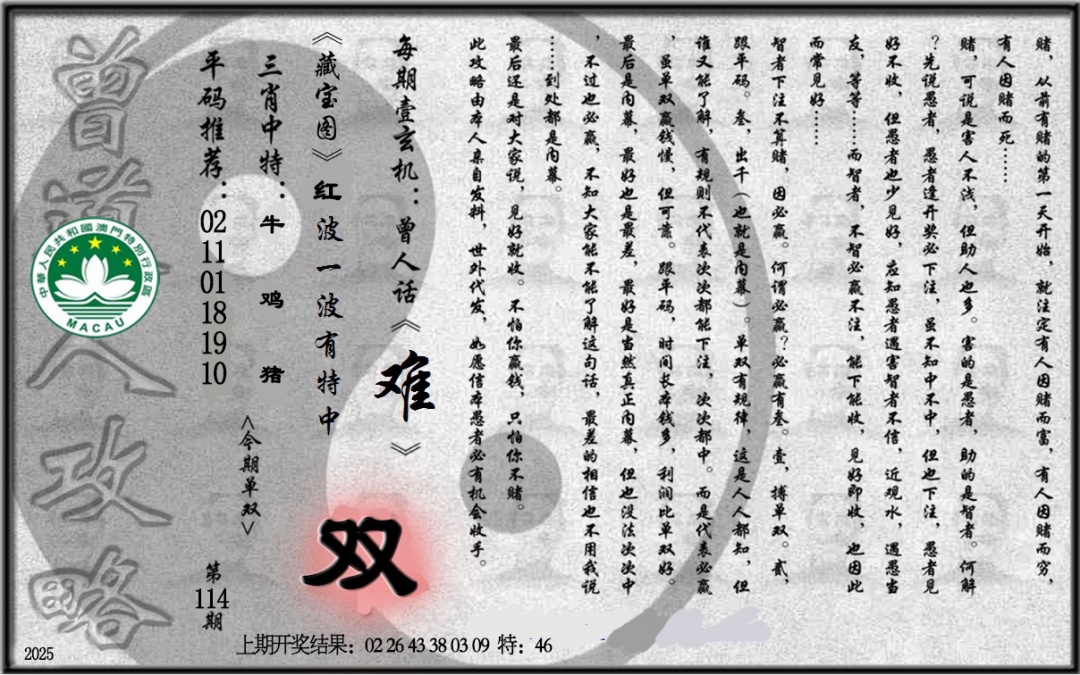 赌，从前有赌的第一天开始，就注定有人因赌而富，有人因赌而穷，
有人因赌而死……
赌，可说是害人不浅，但助人也多。害的是愚者，助的是智者。何解
？先说愚者，愚者逢开奖必下注，虽不知中不中，但也下注，愚者见
好不收，但愚者也少见好，应知愚者遇害智者不信，近观水，遇愚当
友，等等……而智者，不智必赢不注，能下能收，见好即收，也因此
而常见好……
智者下注不算赌，因必赢。何谓必赢？必赢有叁。壹，搏单双。贰，
跟平码。叁，出千（也就是内幕）。单双有规律，这是人人都知，但
谁又能了解，有规则不代表次次都能下注，次次都中。而是代表必赢
，虽单双赢钱慢，但可靠。跟平码，时间长本钱多，利润比单双好。
最后是内幕，最好也是最差，最好是当然真正内幕，但也没法次次中
，不过也必赢，不知大家能不能了解这句话，最差的相信也不用我说
……到处都是内幕。
最后还是对大家说，见好就收。不怕你赢钱，只怕你不赌。
此攻略由本人亲自发料，世外代发，如愿信本愚者必有机会收手。
每期壹玄机：曾人话《难》
《藏宝图》红波一波有特中
三肖中特：牛 鸡 猪
平码推荐：02 11 01 18 19 10
<今期单双>
双
第114期
曾道人攻略
中華人民共和國澳門特別行政區
MACAU
上期开奖结果：02 26 43 38 03 09 特：46
2025